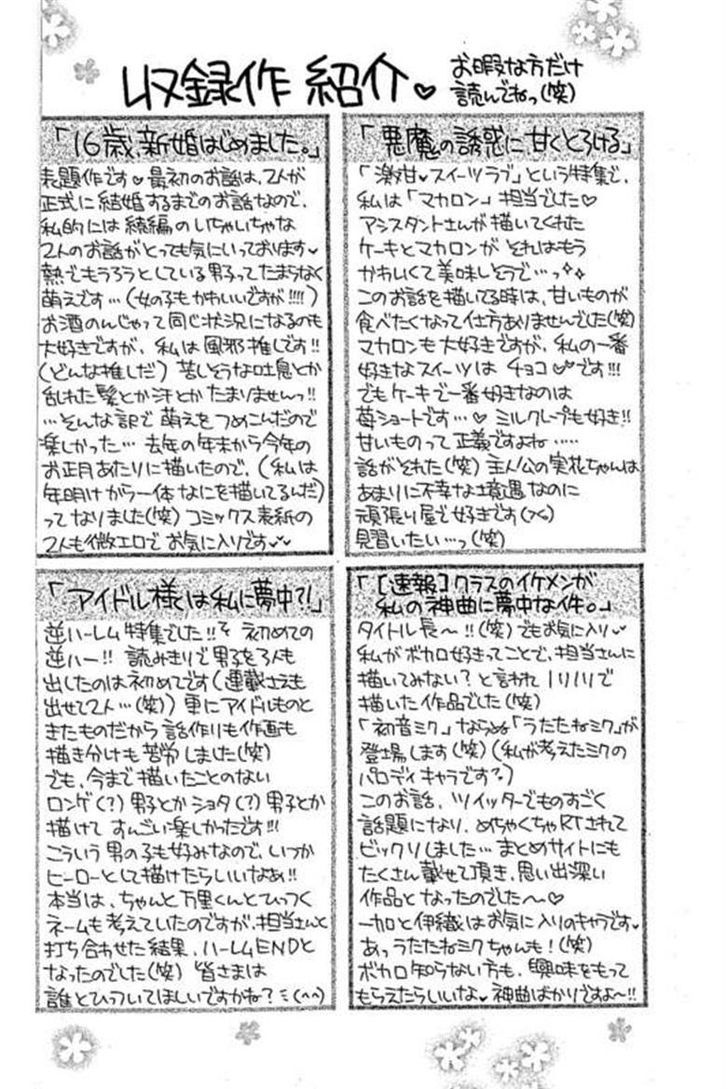 収録作紹介♡
お暇な方だけ
読んでねっ(笑)
「16歳、新婚はじめました。」
表題作です♡ 最初のお話は、2人が
正式に結婚するまでのお話なので、
私的には続編のいちゃいちゃな
2人のお話がとっても気にいっております♡
熱でもうろうとしている男子ってたまらなく
萌えです…(女の子もかわいいですが!!!!)
お酒のんじゃって同じ状況になるのも
大好きですが、私は風邪推しです!!
(どんな推しだ) 苦しそうな吐息とか
乱れた髪とか汗とかたまりませんっ!!
…そんな訳で萌えをつめこんだので
楽しかった… 去年の年末から今年の
お正月あたりに描いたので、(私は
年明けから一体なにを描いてるんだ)
ってなりました(笑) コミックス表紙の
2人も微エロでお気に入りです♡♡
「悪魔の誘惑に、甘くとろける」
「激甘♡スイーツラブ」という特集で、
私は「マカロン」担当でした♡
アシスタントさんが描いてくれた
ケーキとマカロンがそれはもう
かわいくて美味しそうで…っ✧✧
このお話を描いてる時は、甘いものが
食べたくなって仕方ありませんでした(笑)
マカロンも大好きですが、私の一番
好きなスイーツはチョコ♡♡です!!!
でもケーキで一番好きなのは
苺ショートです…♡ ミルクレープも好き!!
甘いものって正義ですよね……
話がそれた(笑) 主人公の実花ちゃんは
あまりに不幸な境遇なのに
頑張り屋で好きです
見習いたい…っ(笑)
「アイドル様は私に夢中?!」
逆ハーレム特集でした!! 初めての
逆ハー!! 読みきりで男子を3人も
出したのは初めてです(連載さえも
出せて2人…(笑)) 更にアイドルものと
きたものだから話作りも作画も
描き分けも苦労しました(笑)
でも、今まで描いたことのない
ロンゲ(?)男子とかショタ(?)男子とか
描けてすんごい楽しかったです!!!
こういう男の子も好みなので、いつか
ヒーローとして描けたらいいなあ!!
本当は、ちゃんと万里くんとひっつく
ネームも考えていたのですが、担当さんと
打ち合わせた結果、ハーレムENDと
なったのでした(笑) 皆さまは
誰とひっついてほしいですかね?ミ(^^)
「[速報]クラスのイケメンが
私の神曲に夢中な件。」
タイトル長〜!!(笑)でもお気に入り♡
私がボカロ好きってことで、担当さんに
描いてみない?と言われノリノリで
描いた作品でした(笑)
「初音ミク」ならぬ「うたたねミク」が
登場します(笑)(私が考えたミクの
パロディキャラです?)
このお話、ツイッターでものすごく
話題になり、めちゃくちゃRTされて
ビックリしました… まとめサイトにも
たくさん載せて頂き、思い出深い
作品となったのでした〜♡
一加と伊織はお気に入りのキャラです♡
あっうたたねミクちゃんも!(笑)
ボカロ知らない方も、興味をもって
もらえたらいいな♡神曲ばかりですよ〜!!